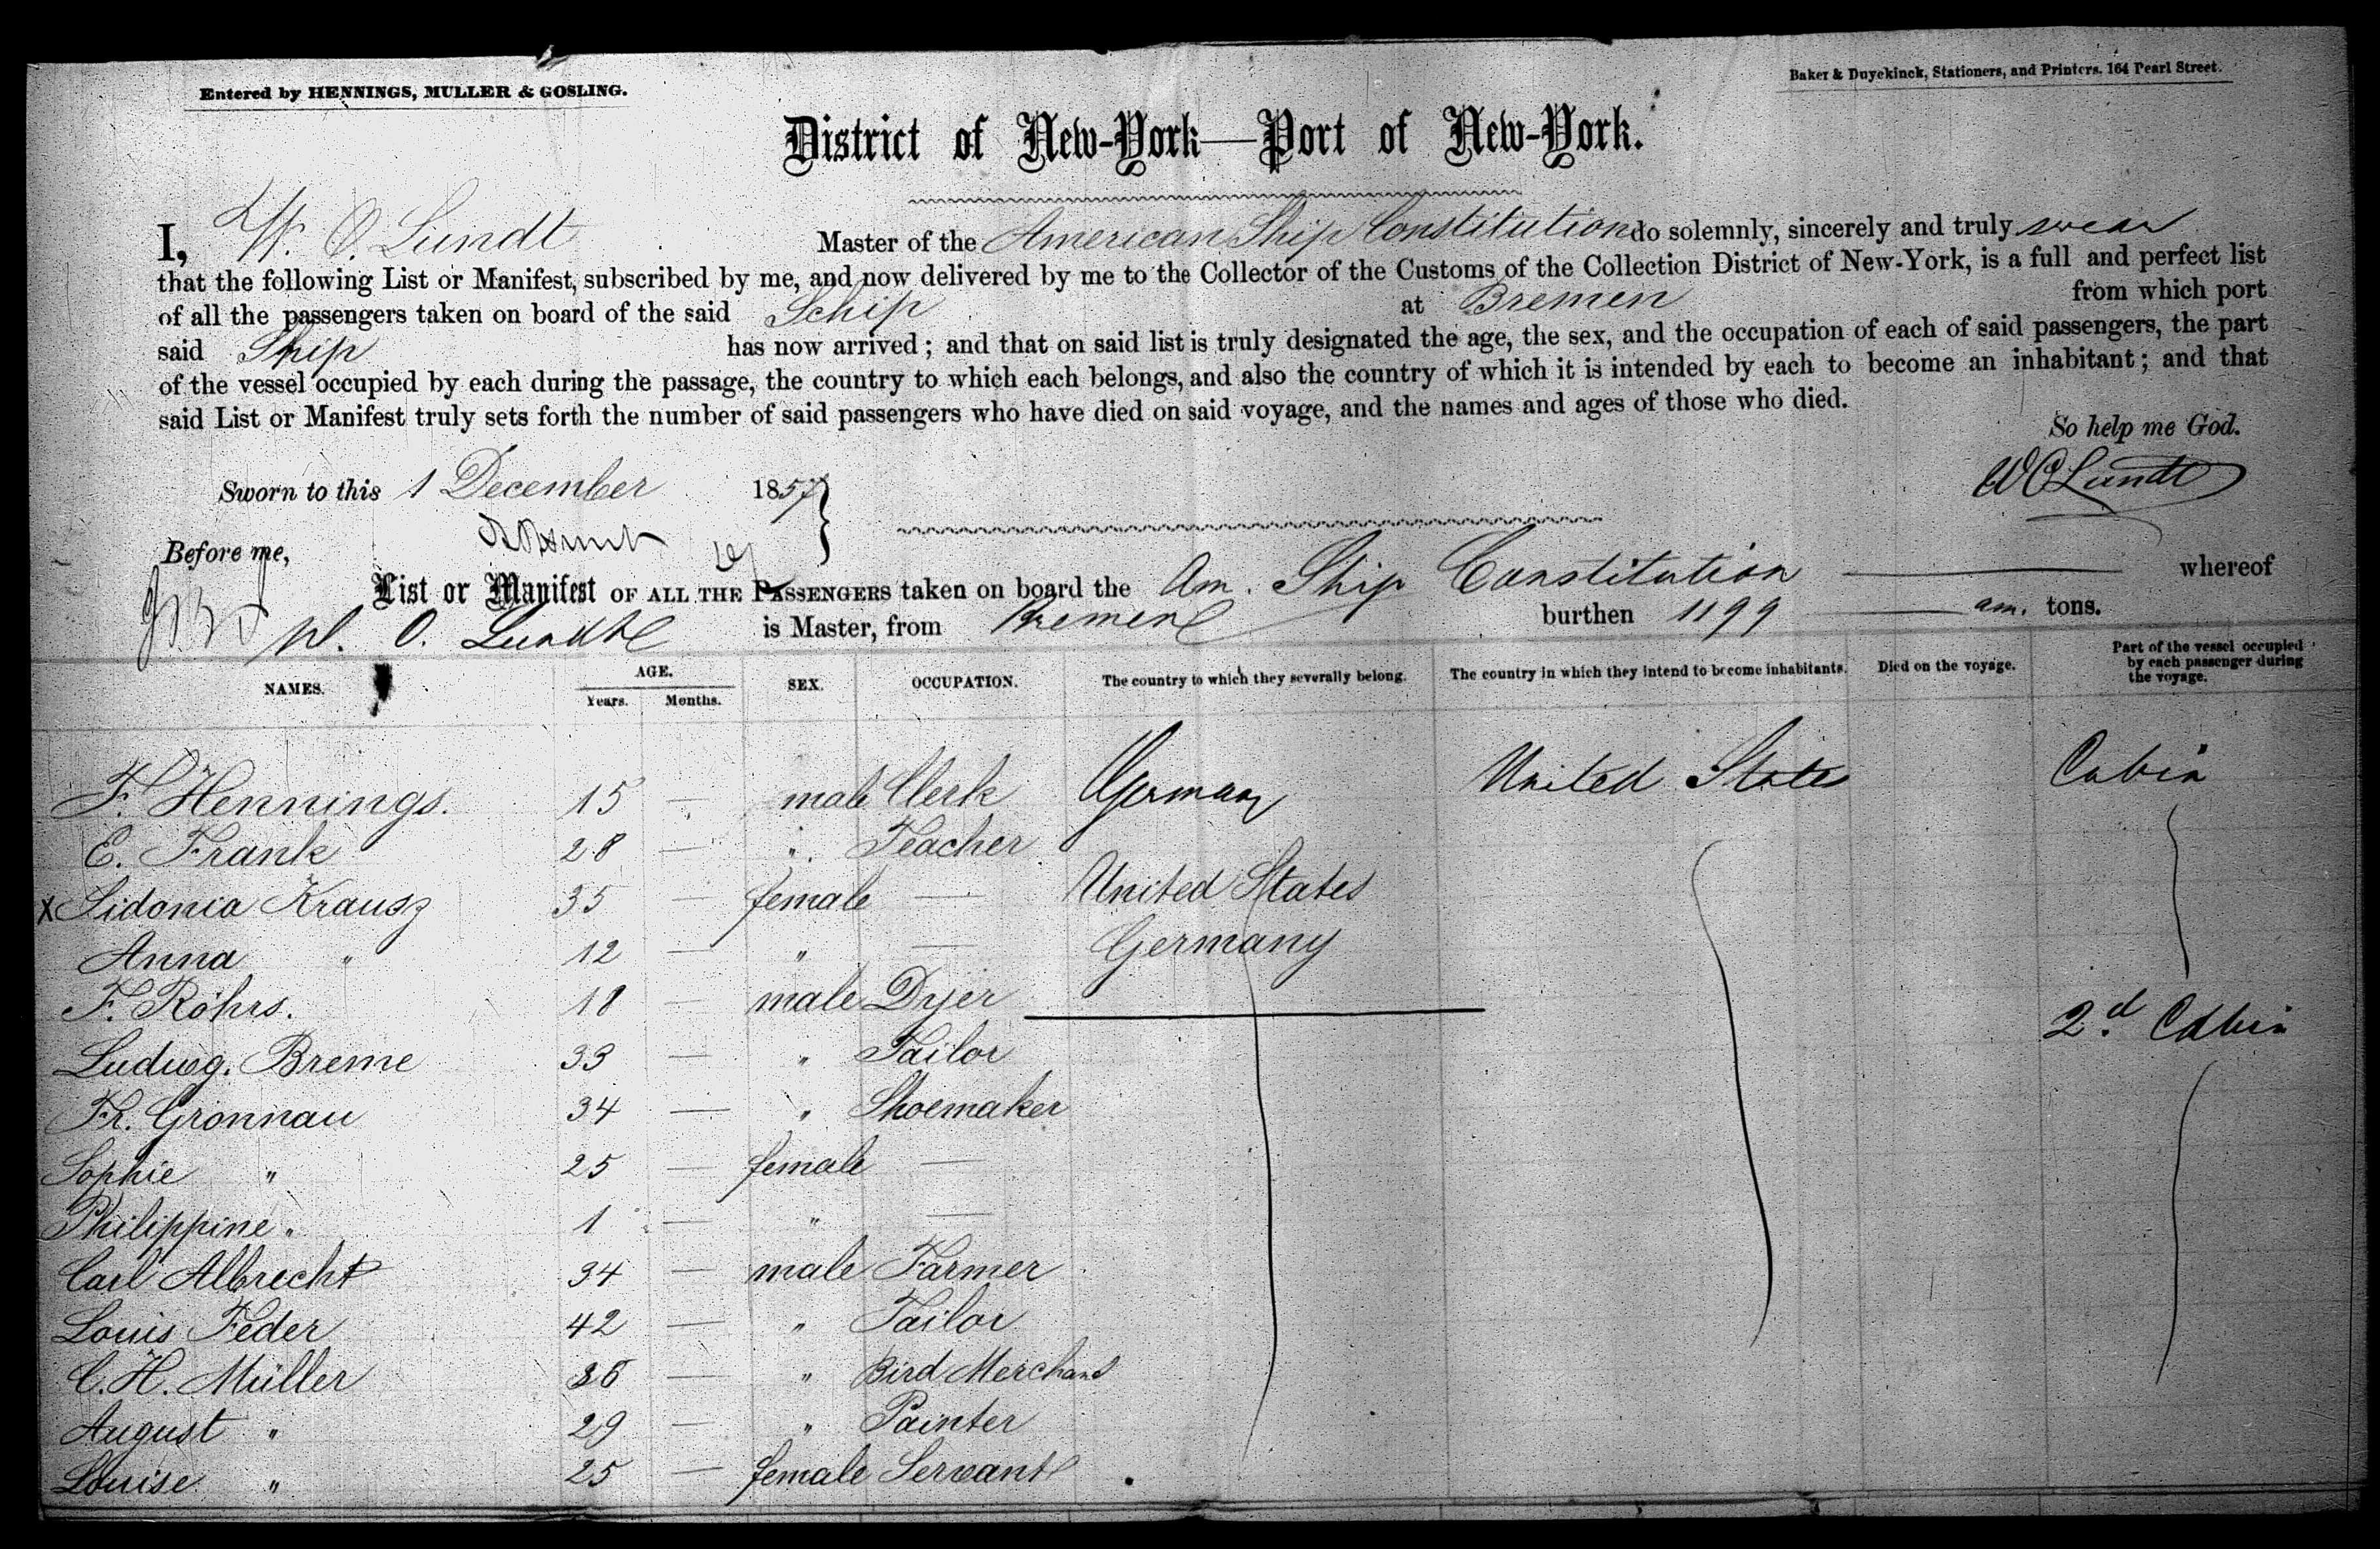 Entered by HENNINGS, MULLER & GOSLING.
Baker & Duyckinck, Stationers, and Printers. 164 Pearl Street.
District of New-York—Port of New-York.
I, W. O. Lundt Master of the American Ship Constitution do solemnly, sincerely and truly swear
that the following List or Manifest, subscribed by me, and now delivered by me to the Collector of the Customs of the Collection District of New-York, is a full and perfect list
of all the passengers taken on board of the said Schip at Bremen from which port
said Ship has now arrived; and that on said list is truly designated the age, the sex, and the occupation of each of said passengers, the part
of the vessel occupied by each during the passage, the country to which each belongs, and also the country of which it is intended by each to become an inhabitant; and that
said List or Manifest truly sets forth the number of said passengers who have died on said voyage, and the names and ages of those who died.
So help me God.
Sworn to this 1 December 1857
W O Lundt
Before me,
List or Manifest OF ALL THE PASSENGERS taken on board the Am. Ship Constitution whereof
W. O. Lundt is Master, from Bremen burthen 1199 am. tons.
NAMES. AGE. Years. Months. SEX. OCCUPATION. The country to which they severally belong. The country in which they intend to become inhabitants. Died on the voyage. Part of the vessel occupied by each passenger during the voyage.
F. Hennings. 15 — male Clerk Germany United States Cabin
E. Frank 28 — " Teacher
X Sidonia Krausz 35 — female — United States
Anna " 12 — " — Germany
F. Röhrs. 18 — male Dyer 2d Cabin
Ludwig. Breme 33 — " Tailor
Fr. Gronnau 34 — " Shoemaker
Sophie " 25 — female —
Philippine " 1 — " —
Carl Albrecht 34 — male Farmer
Louis Feder 42 — " Tailor
C. H. Müller 36 — " Bird Merchand
August " 29 — " Painter
Louise " 25 — female Servant